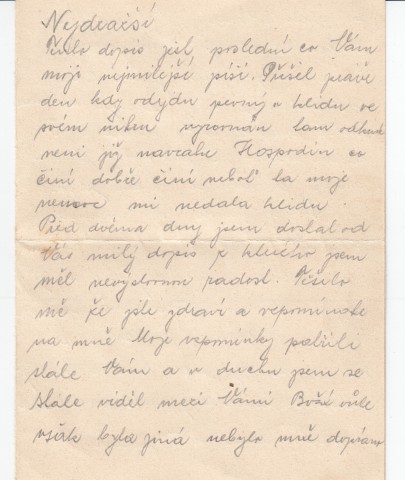 Nejdražší
Tento dopis jest poslední co Vám
moji nejmilejší píši. Přišel právě
den kdy odejdu pevný a klidu ve
svém nitru vyrovnán tam odkud
není již navratu Hospodin co
činí dobře činí neboť ta moje
nemoc mi nedala klidu.
Před dvěma dny jsem dostal od
Vás milý dopis z kterého jsem
měl nevýslovnou radost. Těšilo
mě že jste zdraví a vzpomínate
na mně Moje vzpomínky patřili
stále Vám a v duchu jsem se
stále viděl mezi Vámi Boží vůle
však byla jiná nebylo mně dopřáno